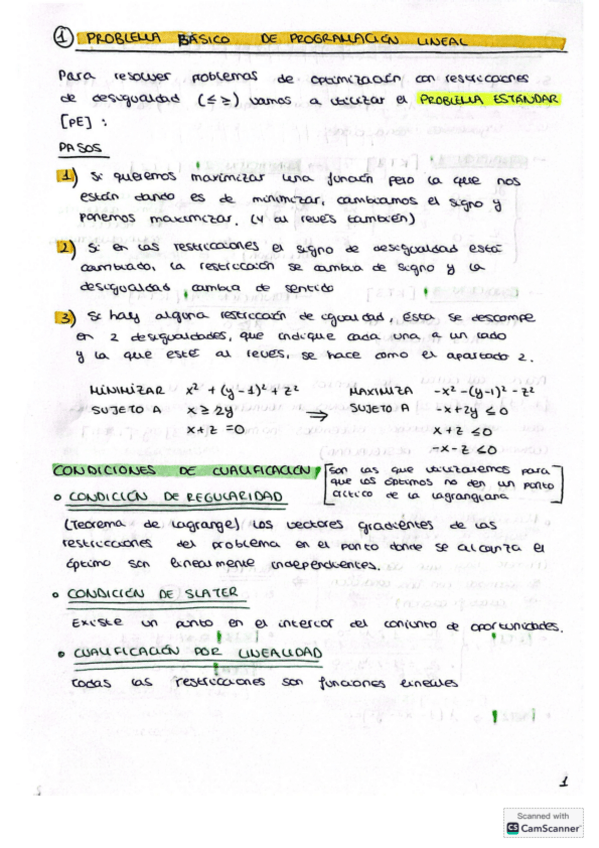 1 PROBLEMA BÁSICO DE PROGRAMACIÓN LINEAL
Para resolver problemas de optimización con restricciones
de desigualdad (≤ ≥) vamos a utilizar el PROBLEMA ESTÁNDAR
[PE] :
PASOS
1) Si queremos maximizar una función pero la que nos
están dando es de minimizar, cambiamos el signo y
ponemos maximizar. (y al revés también)
2) Si en las restricciones el signo de desigualdad está
cambiado, la restricción se cambia de signo y la
desigualdad cambia de sentido
3) Si hay alguna restricción de igualdad, ésta se descompe
en 2 desigualdades, que indique cada una a un lado
y la que esté al revés, se hace como el apartado 2.
MINIMIZAR x² + (y-1)² + z² MAXIMIZA -x² -(y-1)² - z²
SUJETO A x ≥ 2y → SUJETO A -x + 2y ≤ 0
x + z = 0 x + z ≤ 0
-x - z ≤ 0
CONDICIONES DE CUALIFICACIÓN [Son las que utilizaremos para
que los óptimos no den un punto
crítico de la lagrangiana]
• CONDICIÓN DE REGULARIDAD
(Teorema de Lagrange) Los vectores gradientes de las
restricciones del problema en el punto donde se alcanza el
óptimo son linealmente independientes.
• CONDICIÓN DE SLATER
Existe un punto en el interior del conjunto de oportunidades.
• CUALIFICACIÓN POR LINEALIDAD
todas las restricciones son funciones lineales
1
Scanned with
CS CamScanner